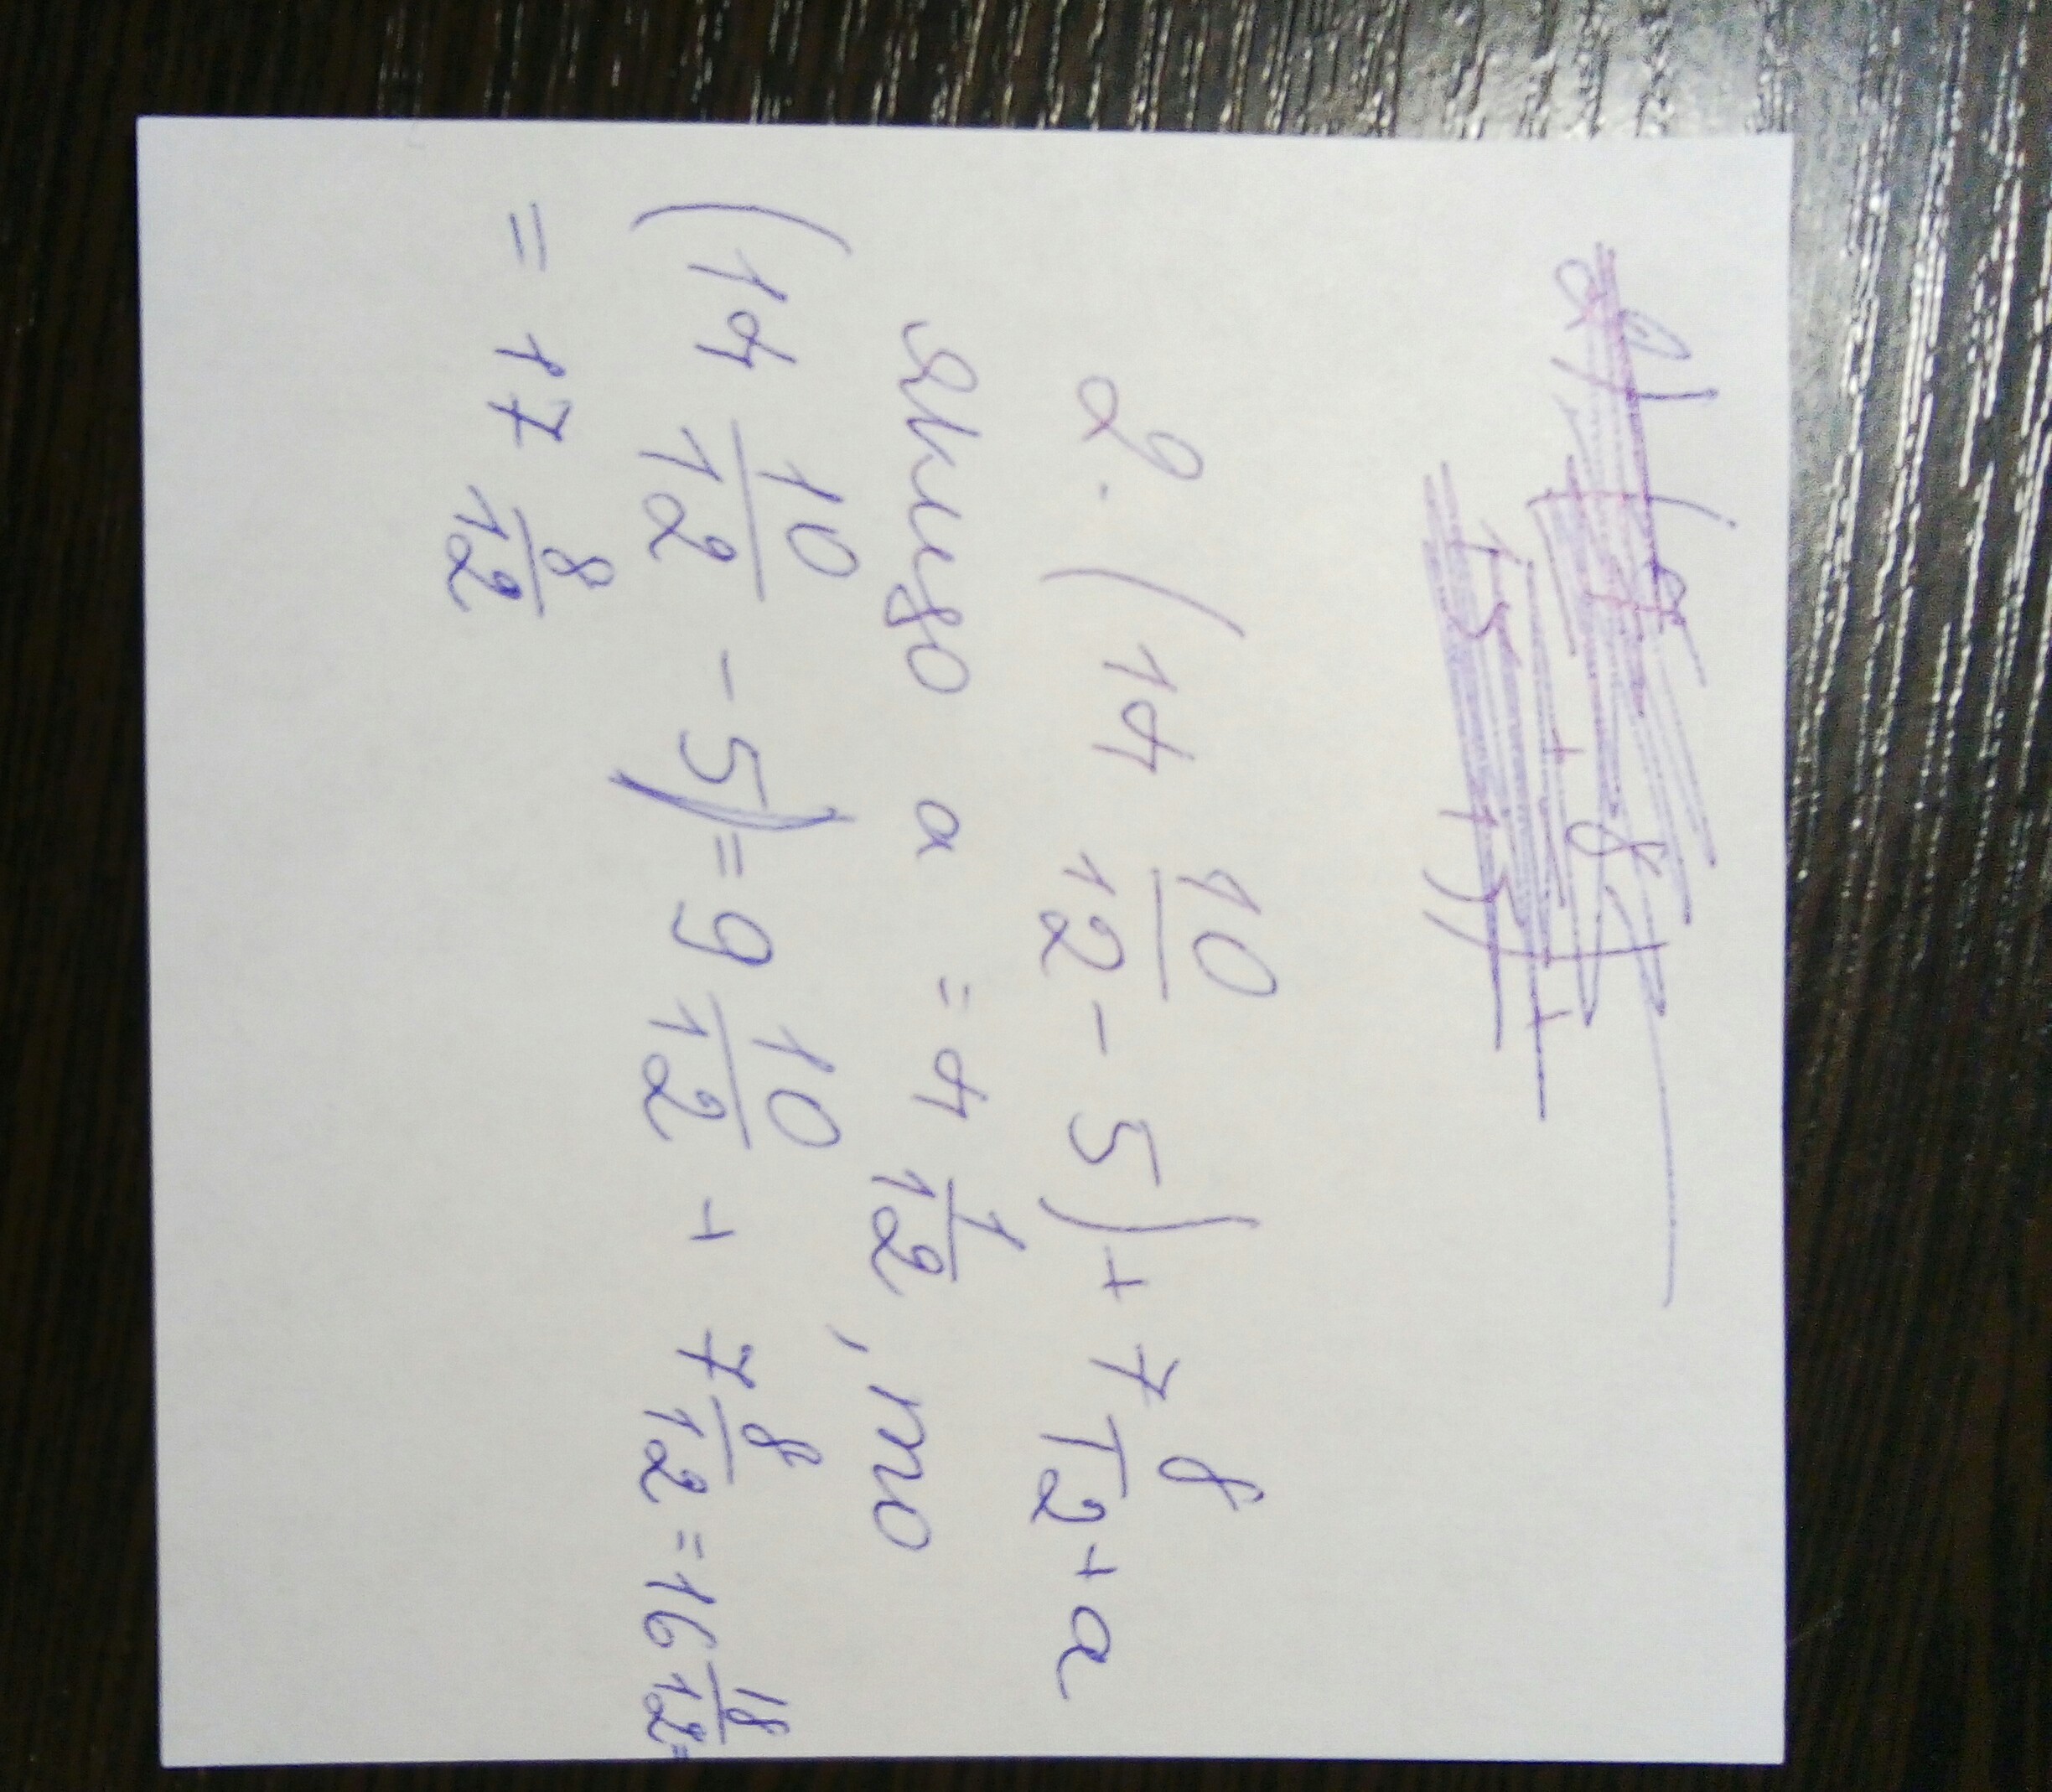 2. (14 10/12 - 5) + 7 8/12 + a
якщо a = 4 1/12, то
(14 10/12 - 5) = 9 10/12 + 7 8/12 = 16 18/12 =
= 17 8/12